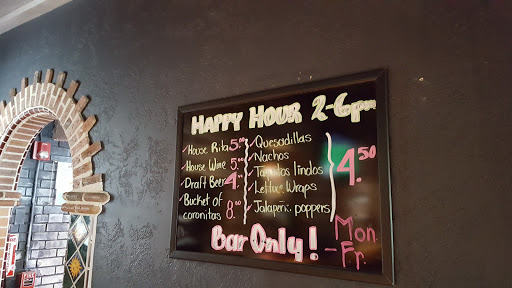 HAPPY HOUR 2-6pm
House Rita 5.00
House Wine 5.00
Draft Beer 4.00
Bucket of
coronitas 8.50
Quesadillas
Nachos
Taquitos lindos
Lettuce Wraps
Jalapeño poppers
4.50
Bar Only! - Mon
Fr.